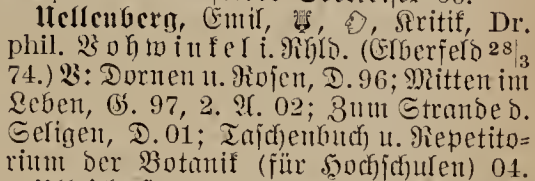 Uellenberg, Emil, Kritik, Dr.
phil. Vohwinkel i. Rhld. (Elberfeld 28/3
74.) V: Dornen u. Rosen, D. 96; Mitten im
Leben, G. 97, 2. A. 02; Zum Strande d.
Seligen, D. 01; Taschenbuch u. Repetito=
rium der Botanik (für Hochschulen) 04.